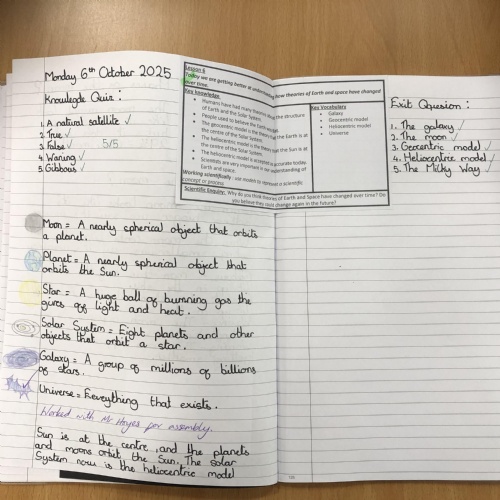 Monday 6th October 2025
Knowlegde Quiz:
1. A natural satellite ✓
2. True ✓
3. False ✓ 5/5
4. Waning ✓
5. Gibbous ✓
Lesson 6
Today we are getting better at understanding how theories of Earth and space have changed
over time.
Key knowledge
Humans have had many theories about the structure
of Earth and the Solar System.
People used to believe the Earth was flat.
The geocentric model is the theory that the Earth is at
the centre of the Solar System.
The heliocentric model is the theory that the Sun is at
the centre of the Solar System.
The heliocentric model is accepted as accurate today.
Scientists are very important in our understanding of
Earth and space.
Working scientifically: use models to represent a scientific
concept or process.
Key Vocabulary
Galaxy
Geocentric model
Heliocentric model
Universe
Scientific Enquiry: Why do you think theories of Earth and Space have changed over time? Do
you believe they could change again in the future?
Moon = A nearly spherical object that orbits
a planet.
Planet = A nearly spherical object that
orbits the Sun.
Star = A huge ball of burnning gas the
gives off light and heat.
Solar System = Eight planets and other
objects that orbit a star.
Galaxy = A group of millions of billions
of stars.
Universe = Eeveything that exists.
Worked with Mr Hayes for assembly.
Sun is at the centre, and the planets
and moons orbit the Sun. The solar
System now is the heliocentric model
Exit Quesion:
1. The galaxy ✓
2. The moon ✓
3. Geocentric model ✓
4. Heliocentric model ✓
5. The Milky Way ✓